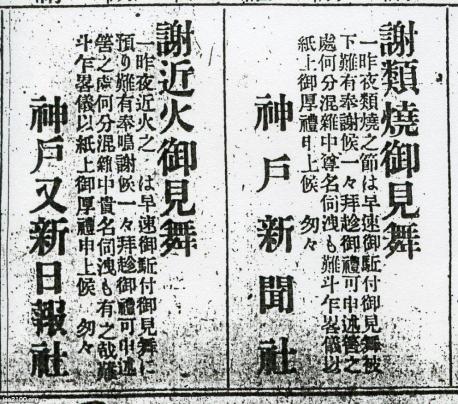 謝類燒御見舞
一昨夜類燒之節は早速御駈付御見舞被
下難有奉謝候一々拜趁御禮可申述筈之
處何分混雜中尊名伺洩も難斗乍畧儀以
紙上御厚禮申上候 匆々
神戸新聞社
謝近火御見舞
一昨夜近火之 は早速御駈付御見舞に
預り難有奉鳴謝候一々拜趁御禮可申述
筈之處何分混雜中貴名伺洩も有之哉難
斗乍畧儀以紙上御厚禮申上候 匆々
神戸又新日報社